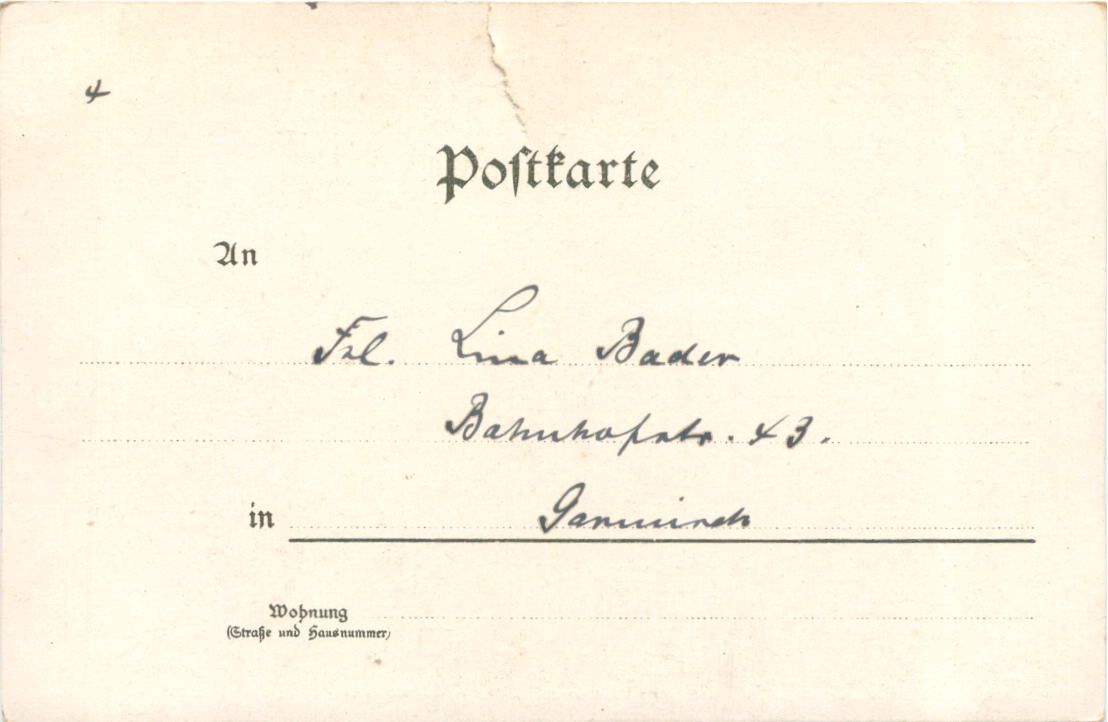 4
Postkarte
An
Frl. Lina Bader
Bahnhofstr. 43.
in Garmisch
Wohnung
(Straße und Hausnummer)